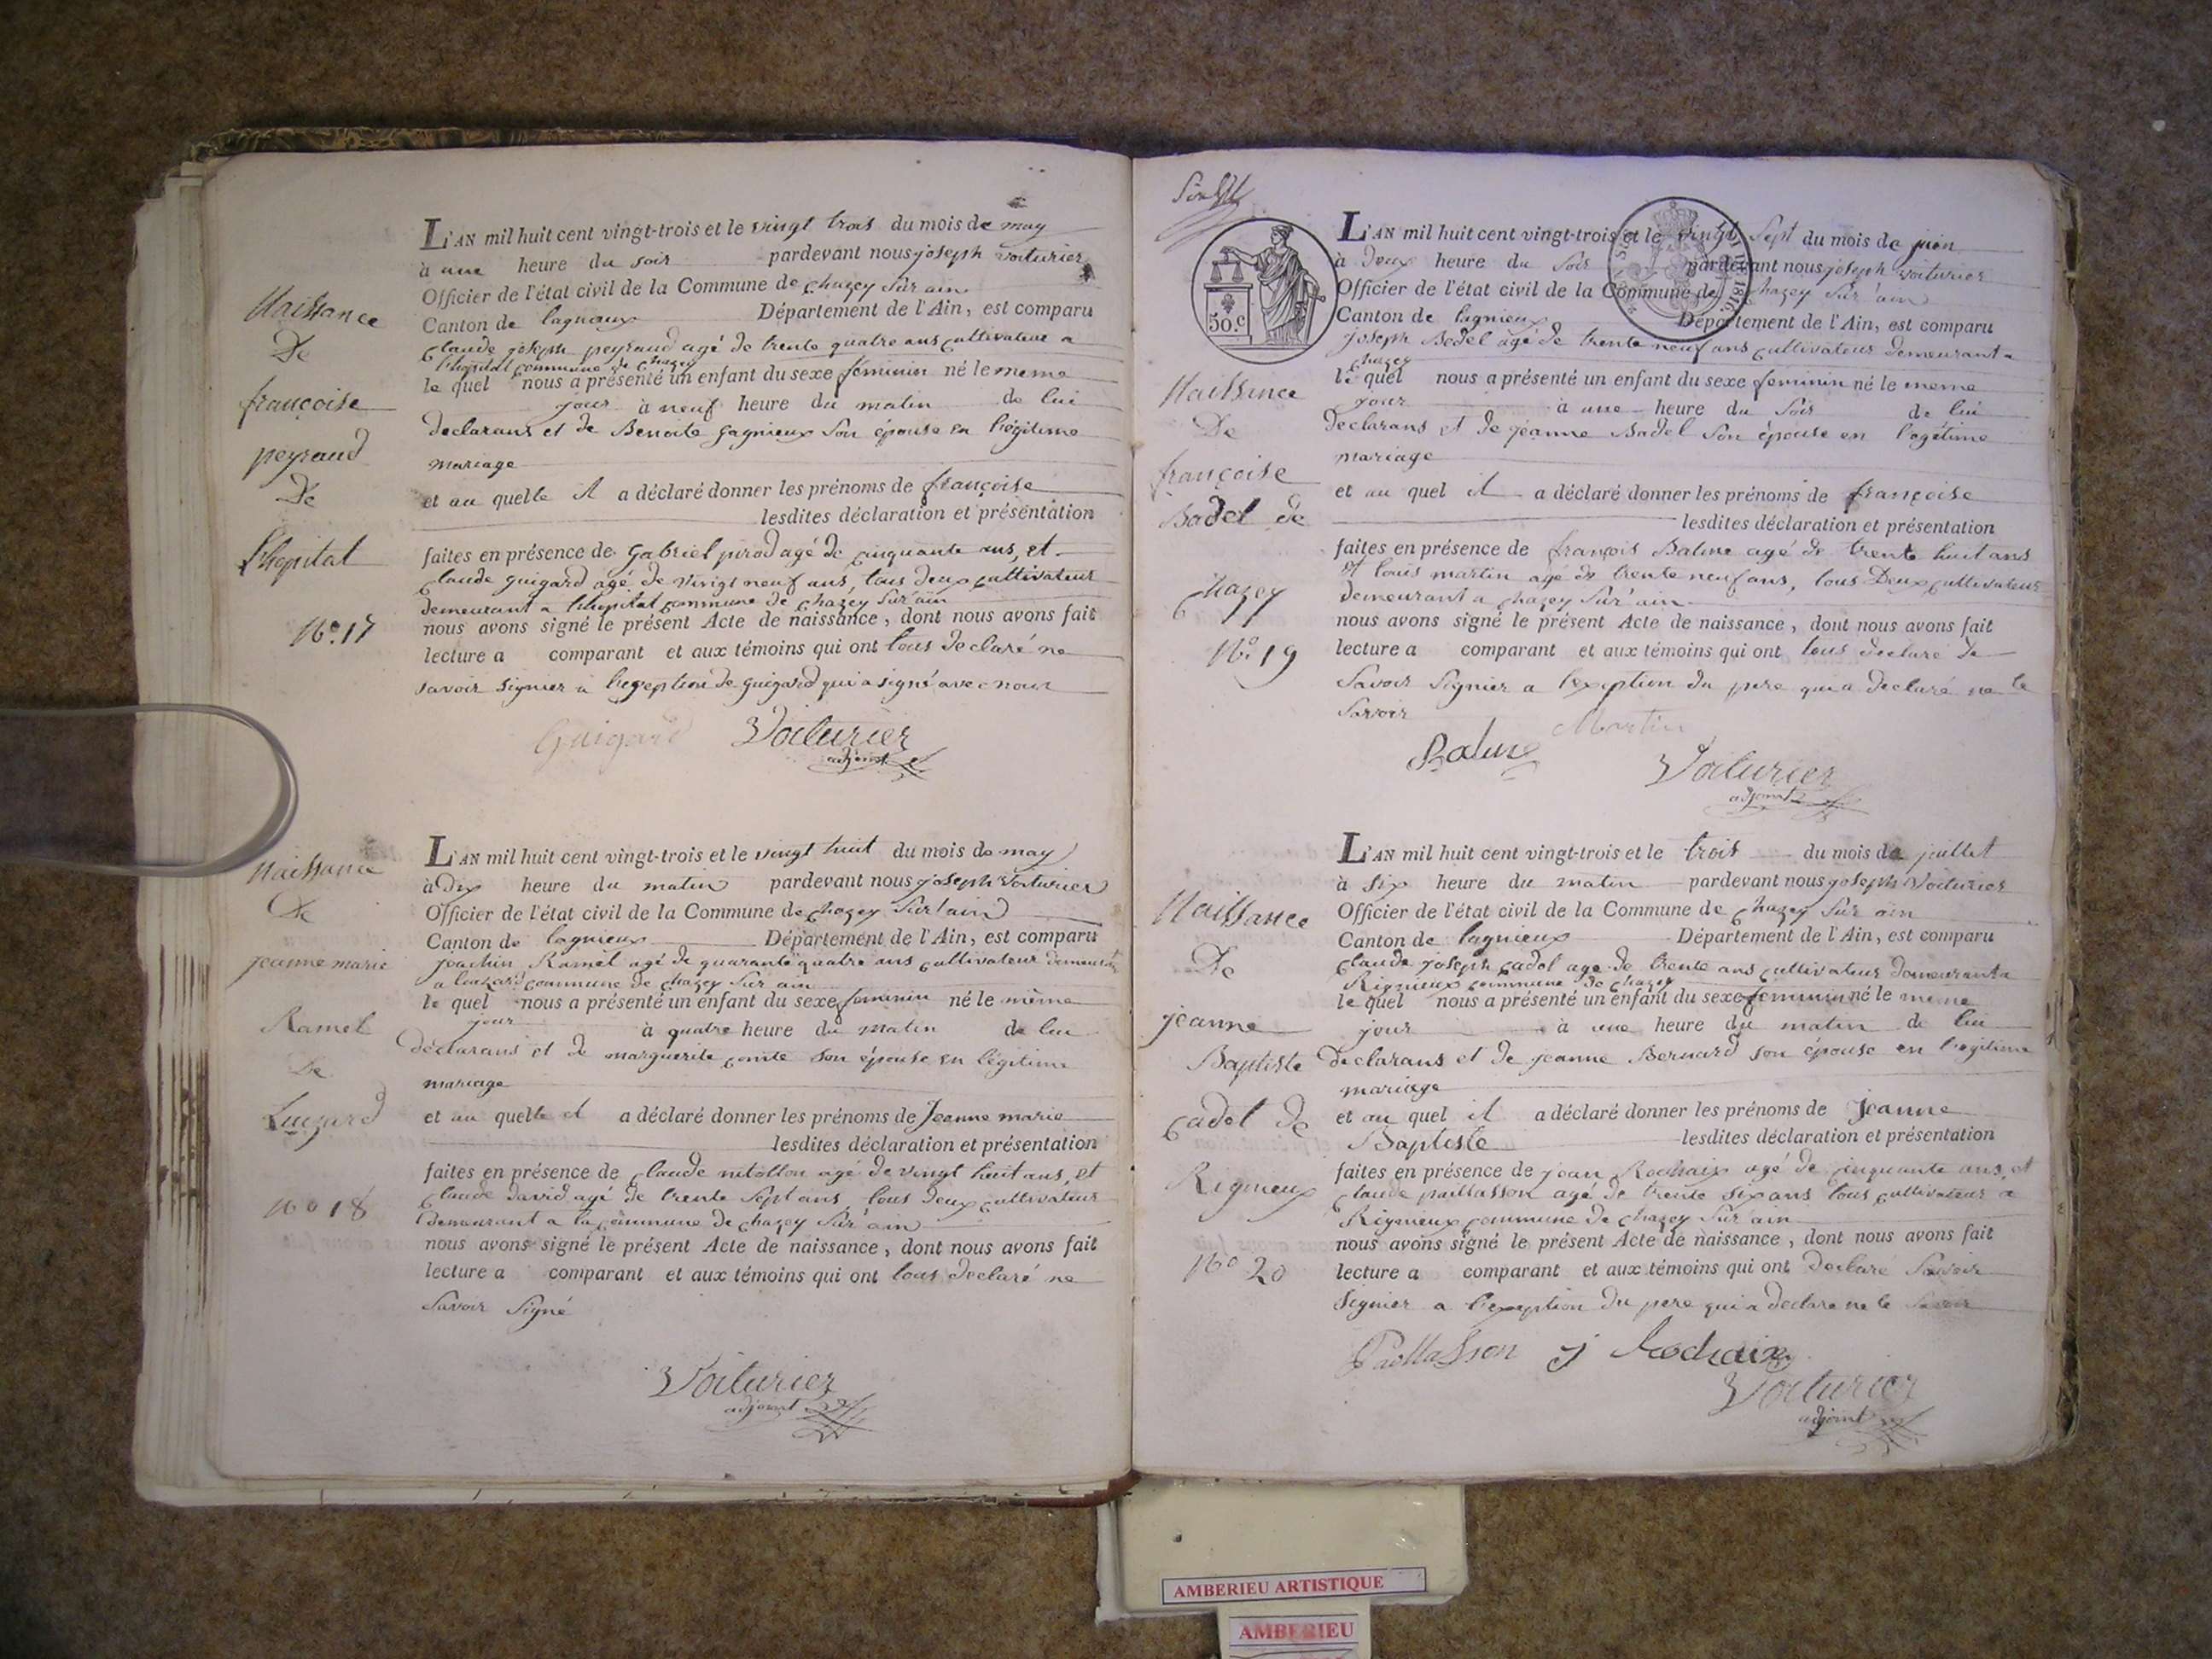 Naissance
De
françoise
peyraud
De
L'hopital
N.o 17
L'AN mil huit cent vingt-trois et le vingt trois du mois de may
à une heure du soir pardevant nous joseph voiturier
Officier de l'état civil de la Commune de chazey sur ain
Canton de lagnieux Département de l'Ain, est comparu
Claude joseph peyraud agé de trente quatre ans cultivateur a
l'hopital commune de chazey
le quel nous a présenté un enfant du sexe feminin né le meme
jour à neuf heure du matin de lui
declarans et de Benoite gagnieux son épouse en légitime
mariage
et au quelle il a déclaré donner les prénoms de françoise
lesdites déclaration et présentation
faites en présence de Gabriel pirod agé de cinquante ans, et
claude guigard agé de vingt neuf ans, tous deux cultivateur
demeurant a l'hopital commune de chazey sur ain
nous avons signé le présent Acte de naissance, dont nous avons fait
lecture a comparant et aux témoins qui ont tous declaré ne
savoir signier a l'exeption de guigard qui a signé avec nous
Guigard Voiturier
adjoint
Naissance
De
jeanne marie
Ramel
De
Luizard
No 18
L'AN mil huit cent vingt-trois et le vingt huit du mois de may
à Dix heure du matin pardevant nous joseph voiturier
Officier de l'état civil de la Commune de chazey sur l'ain
Canton de lagnieux Département de l'Ain, est comparu
joachin Ramel agé de quarante quatre ans cultivateur demeurant
a luizard commune de chazey sur ain
le quel nous a présenté un enfant du sexe feminin né le même
jour à quatre heure du matin de lui
declarans et de marguerite comte son épouse en légitime
mariage
et au quelle il a déclaré donner les prénoms de Jeanne marie
lesdites déclaration et présentation
faites en présence de claude agé de vingt huit ans, et
claude david agé de trente sept ans, tous deux cultivateur
demeurant a la commune de chazey sur ain
nous avons signé le présent Acte de naissance, dont nous avons fait
lecture a comparant et aux témoins qui ont tous declaré ne
savoir signé
Voiturier
adjoint
50.c
1817
Naissance
De
françoise
Badel de
chazey
No 19
L'AN mil huit cent vingt-trois et le vingt sept du mois de juin
à deux heure du soir pardevant nous joseph voiturier
Officier de l'état civil de la Commune de chazey sur ain
Canton de lagnieux Département de l'Ain, est comparu
joseph Badel agé de trente neuf ans cultivateur demeurant a
chazey
le quel nous a présenté un enfant du sexe feminin né le meme
jour à une heure du soir de lui
declarans et de jeanne Badel son épouse en légétime
mariage
et au quel il a déclaré donner les prénoms de françoise
lesdites déclaration et présentation
faites en présence de françois Balme agé de trente huit ans
et louis martin agé de trente neuf ans, tous Deux cultivateur
demeurant a chazey sur ain
nous avons signé le présent Acte de naissance, dont nous avons fait
lecture a comparant et aux témoins qui ont tous declaré de
savoir signier a l'exeption du pere qui a declaré ne le
savoir
Balme Martin
Voiturier
adjoint
Naissance
De
jeanne
Baptiste
cadol De
Rignieux
No 20
L'AN mil huit cent vingt-trois et le trois du mois de juillet
à six heure du matin pardevant nous joseph voiturier
Officier de l'état civil de la Commune de chazey sur ain
Canton de lagnieux Département de l'Ain, est comparu
claude joseph cadol age de trente ans cultivateur demeurant a
Rignieux commune de chazey
le quel nous a présenté un enfant du sexe feminin né le meme
jour à une heure du matin de lui
declarans et de jeanne Bernard son épouse en légitime
mariage
et au quel il a déclaré donner les prénoms de Jeanne
Baptiste lesdites déclaration et présentation
faites en présence de joan Rochaix agé de cinquante ans, et
claude paillasson agé de trente six ans tous cultivateur a
Rignieux commune de chazey sur ain
nous avons signé le présent Acte de naissance, dont nous avons fait
lecture a comparant et aux témoins qui ont declaré savoir
signier a l'exeption du pere qui a declare ne le savoir
Paillasson j Rochaix
Voiturier
adjoint
AMBERIEU ARTISTIQUE
AMBERIEU